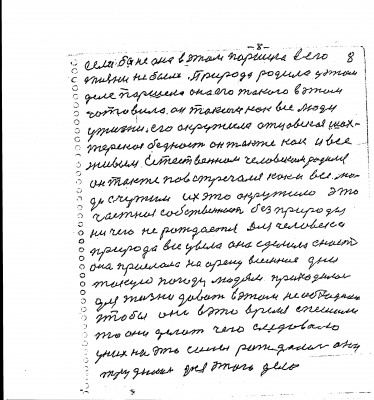 -8-
8
если бы не она в этом парщика в его
жизни не была. Природа родила у этом
деле парщека она его такого в этом
готовила. он таким как все люди
у жизни. его окружила отцовская шах-
терская бедность он также как и все
живым Естественном человеком родился
он также повстречался как и все лю-
ди с чужим их это окружило это
частная собственность без природы
ни чего не рождается для человека
природа все увела она сделала
она прислала на арену военные дни
такую погоду людям приходилось
для жизни давать в этом необходимо
чтобы они в это время спешили
то они делают чего следовало
у них на это силы рождались они
трудились для этого дела